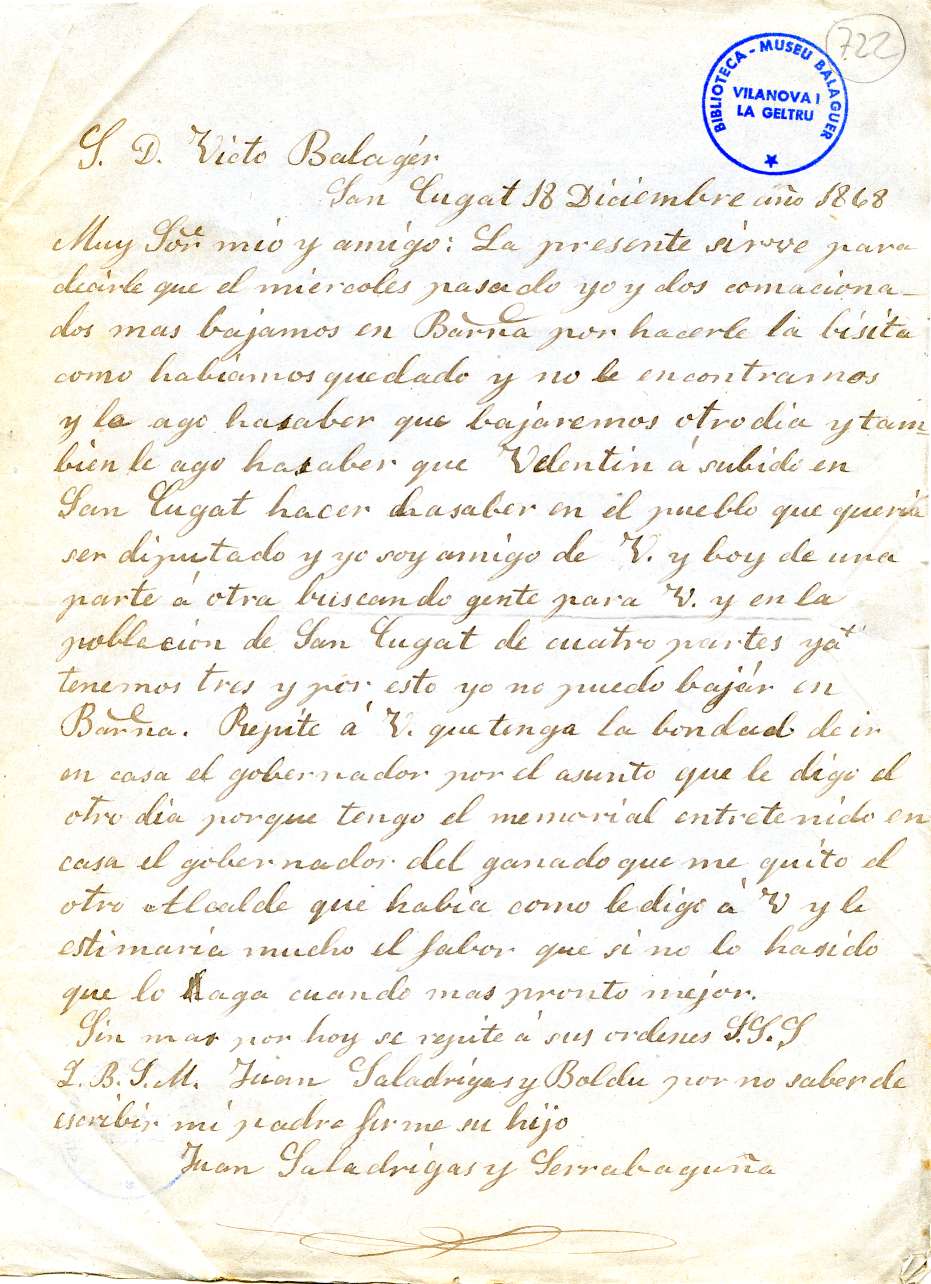 722
BIBLIOTECA - MUSEU BALAGUER
VILANOVA I
LA GELTRU
S. D. Victo Balagér
San Cugat 18 Diciembre año 1868
Muy Sor mio y amigo: La presente sirve para
decirle que el miércoles pasado yo y dos comaciona_
dos mas bajamos en Barna por hacerle la bisita
como habiamos quedado y no le encontramos
y le ago hasaber que bajaremos otro dia y tam_
bien le ago hasaber que Valentin á subido en
San Cugat hacer hasaber en el pueblo que queria
ser diputado y yo soy amigo de V. y boy de una
parte á otra buscando gente para V. y en la
poblacion de San Cugat de cuatro partes ya
tenemos tres y por esto yo no puedo bajár en
Barna. Repite á V. que tenga la bondad de ir
en casa el gobernador por el asunto que le digo el
otro dia porque tengo el memorial entretenido en
casa el gobernador del ganado que me quito el
otro Alcalde que habia como le digo á V y le
estimaria mucho el fabor que si no lo hasido
que lo haga cuando mas pronto mejor.
Sin mas por hoy se repite á sus ordenes S.S.S
Q.B.S.M. Juan Saladrigas y Boldu por no saber de
escribir mi padre firme su hijo
Juan Saladrigas y Serrabaguña